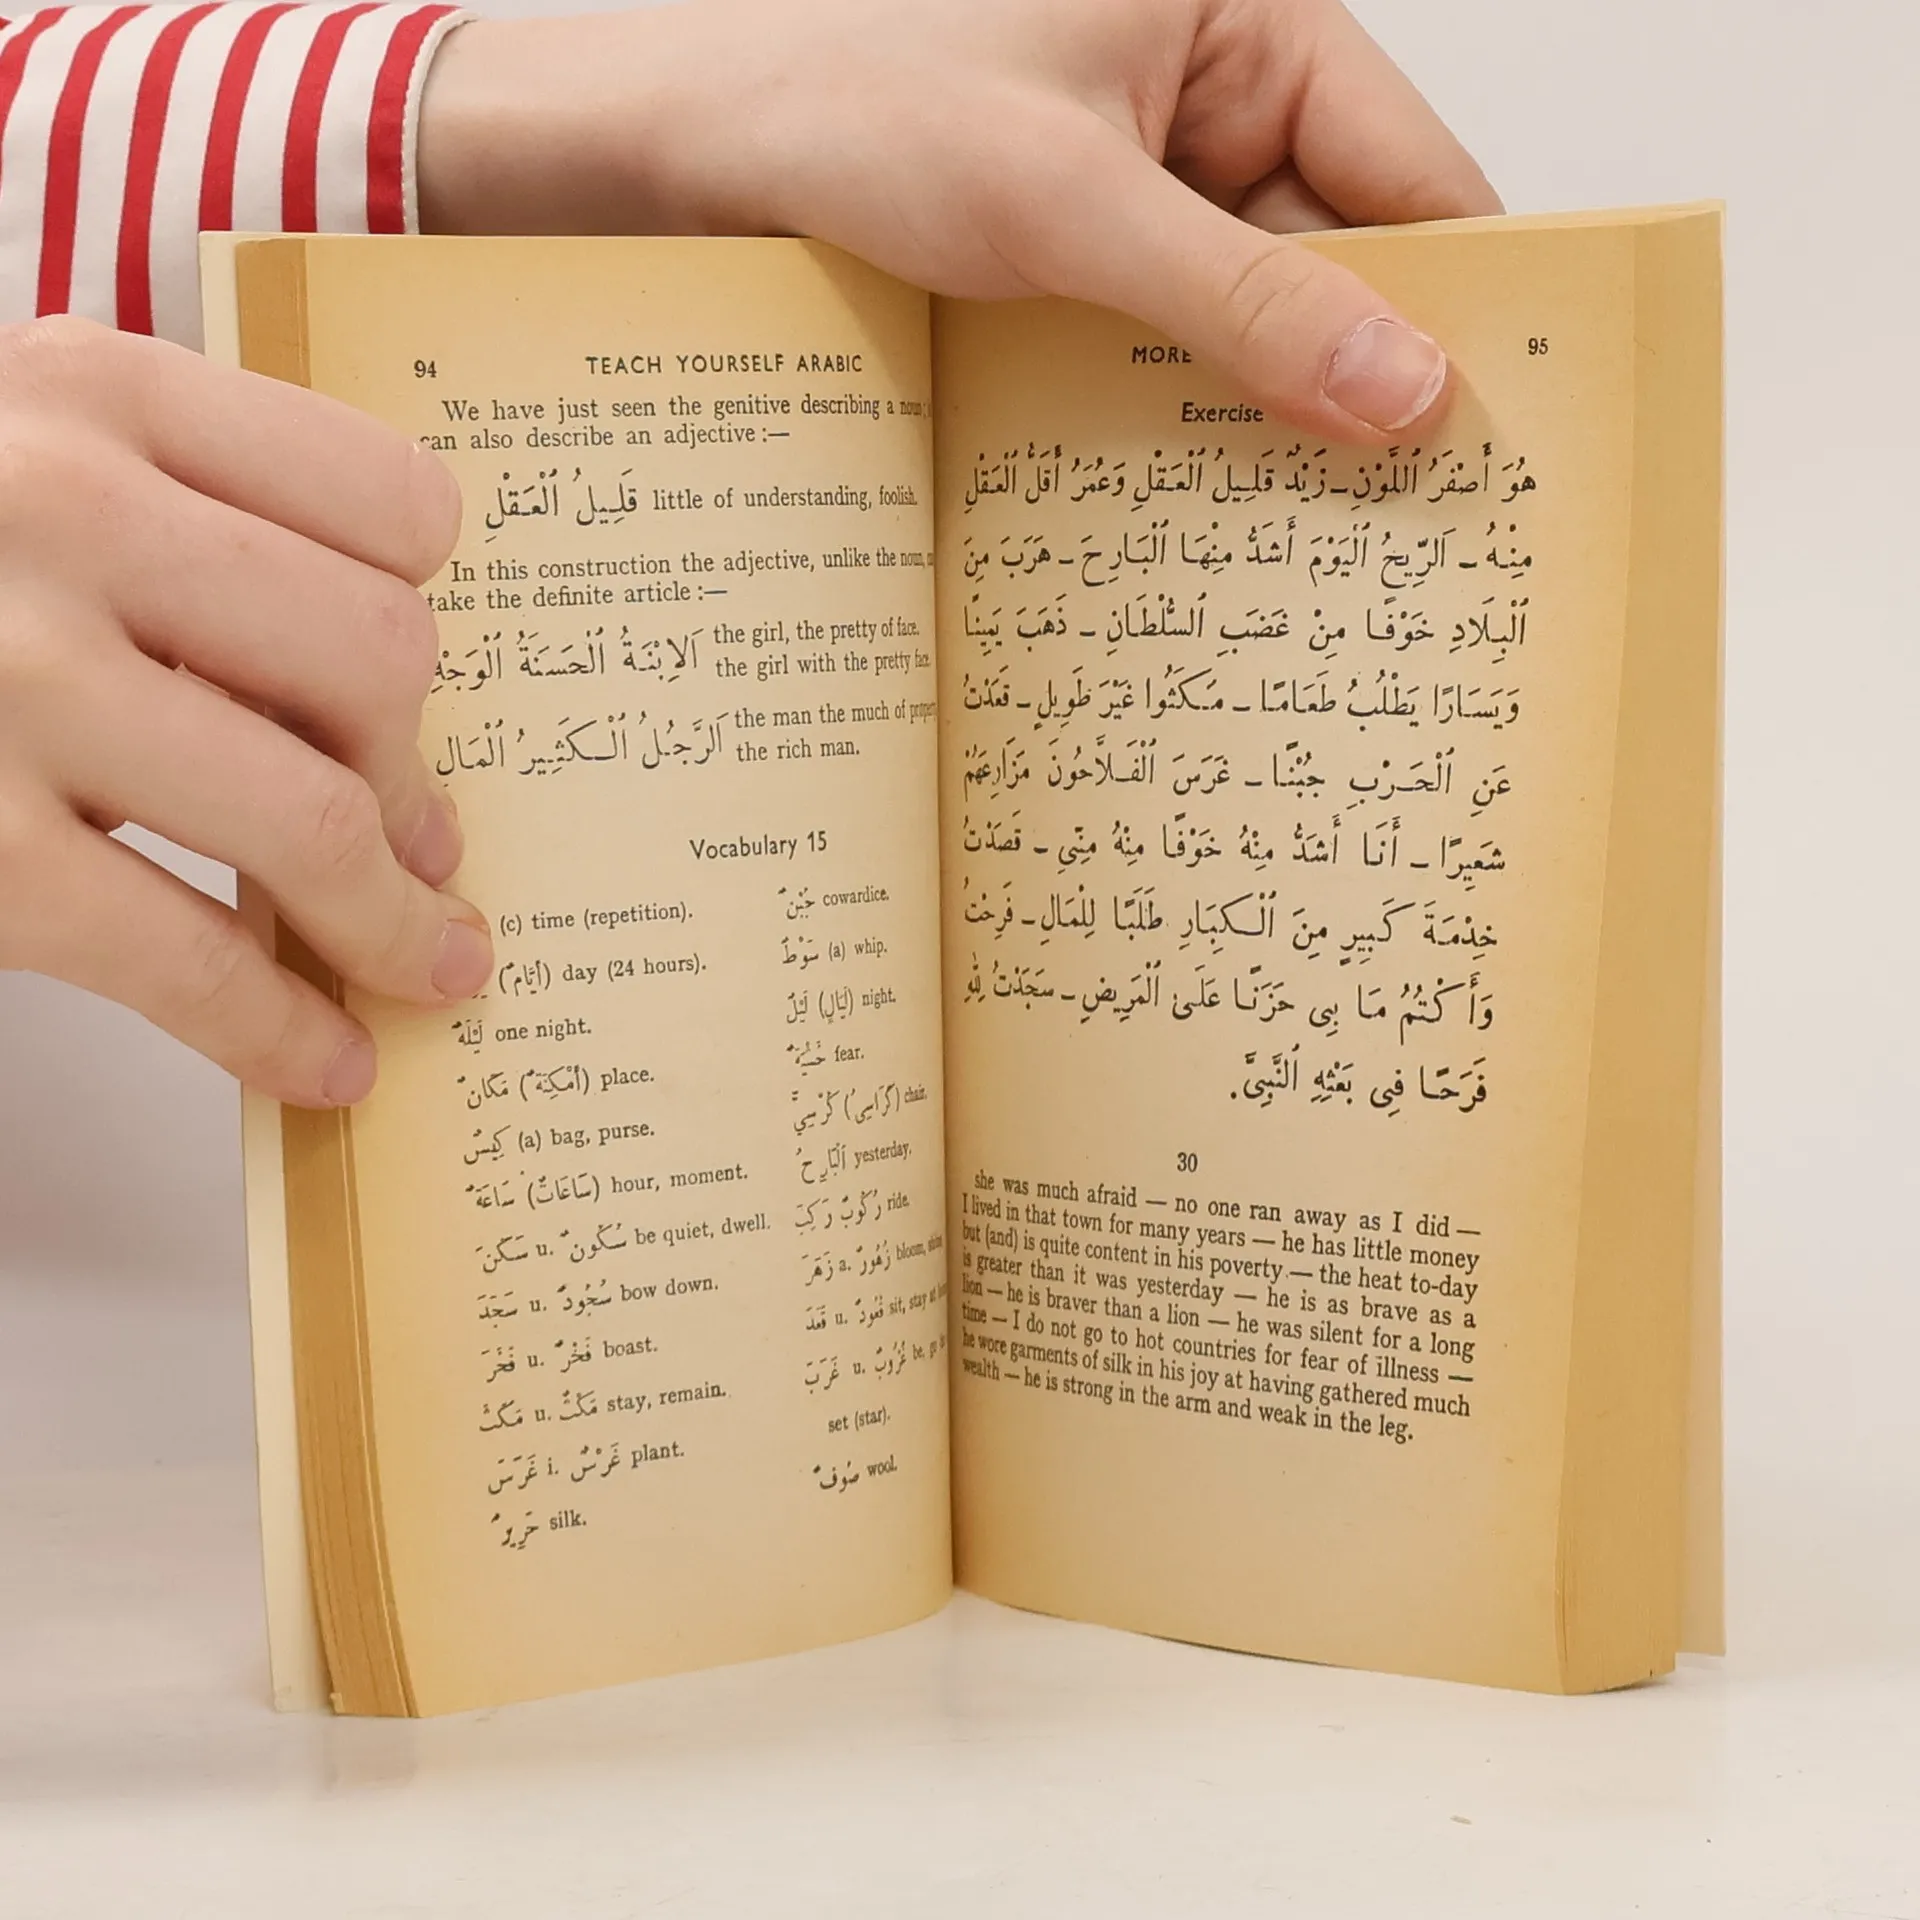 94 TEACH YOURSELF ARABIC
We have just seen the genitive describing a
can also describe an adjective :—
قَلِيلُ ٱلْعَقْلِ little of understanding, foolish.
In this construction the adjective, unlike the noun,
take the definite article :—
اَلاِبْنَةُ ٱلْحَسَنَةُ ٱلْوَجْهِ the girl, the pretty of face.
the girl with the pretty face.
اَلرَّجُلُ ٱلْكَثِيرُ ٱلْمَالِ the man the much of
the rich man.
Vocabulary 15
(c) time (repetition).
(أَيَّامٌ) day (24 hours).
لَيْلَةٌ one night.
مَكَانٌ (أَمْكِنَةٌ) place.
كِيسٌ (a) bag, purse.
سَاعَةٌ (سَاعَاتٌ) hour, moment.
سَكَنَ u. سُكُونٌ be quiet, dwell.
سَجَدَ u. سُجُودٌ bow down.
فَخَرَ u. فَخْرٌ boast.
مَكَثَ u. مَكْثٌ stay, remain.
غَرَسَ i. غَرْسٌ plant.
حَرِيرٌ silk.
جُبْنٌ cowardice.
سَوْطٌ (a) whip.
لَيْلٌ (لَيَالٍ) night.
fear.
كُرْسِيٌّ (كَرَاسِيُ) chair.
اَلْبَارِحُ yesterday.
رَكِبَ رُكُوبٌ ride.
زَهَرَ a. زُهُورٌ bloom,
قَعَدَ u. قُعُودٌ sit, stay at
غَرَبَ u. غُرُوبٌ be, go
set (star).
صُوفٌ wool.
MORE 95
Exercise
هُوَ أَصْفَرُ ٱللَّوْنِ – زَيْدٌ قَلِيلُ ٱلْعَقْلِ وَعُمَرُ أَقَلُّ ٱلْعَقْلِ
مِنْهُ – اَلرِّيحُ ٱلْيَوْمَ أَشَدُّ مِنْهَا ٱلْبَارِحَ – هَرَبَ مِنَ
ٱلْبِلَادِ خَوْفًا مِنْ غَضَبِ ٱلسُّلْطَانِ – ذَهَبَ يَمِينًا
وَيَسَارًا يَطْلُبُ طَعَامًا – مَكَثُوا غَيْرَ طَوِيلٍ – قَعَدْتُ
عَنِ ٱلْحَرْبِ جُبْنًا – غَرَسَ ٱلْفَلَّاحُونَ مَزَارِعَهُمْ
شَعِيرًا – أَنَا أَشَدُّ مِنْهُ خَوْفًا مِنْهُ مِنِّي – قَصَدْتُ
خِدْمَةَ كَبِيرٍ مِنَ ٱلْكِبَارِ طَلَبًا لِلْمَالِ – فَرِحْتُ
وَأَكْتُمُ مَا بِي حَزَنًا عَلَى ٱلْمَرِيضِ – سَجَدْتُ لِلّٰهِ
فَرَحًا فِي بَعْثِهِ ٱلنَّبِيَّ.
30
she was much afraid — no one ran away as I did —
I lived in that town for many years — he has little money
but (and) is quite content in his poverty — the heat to-day
is greater than it was yesterday — he is as brave as a
lion — he is braver than a lion — he was silent for a long
time — I do not go to hot countries for fear of illness —
he wore garments of silk in his joy at having gathered much
wealth — he is strong in the arm and weak in the leg.